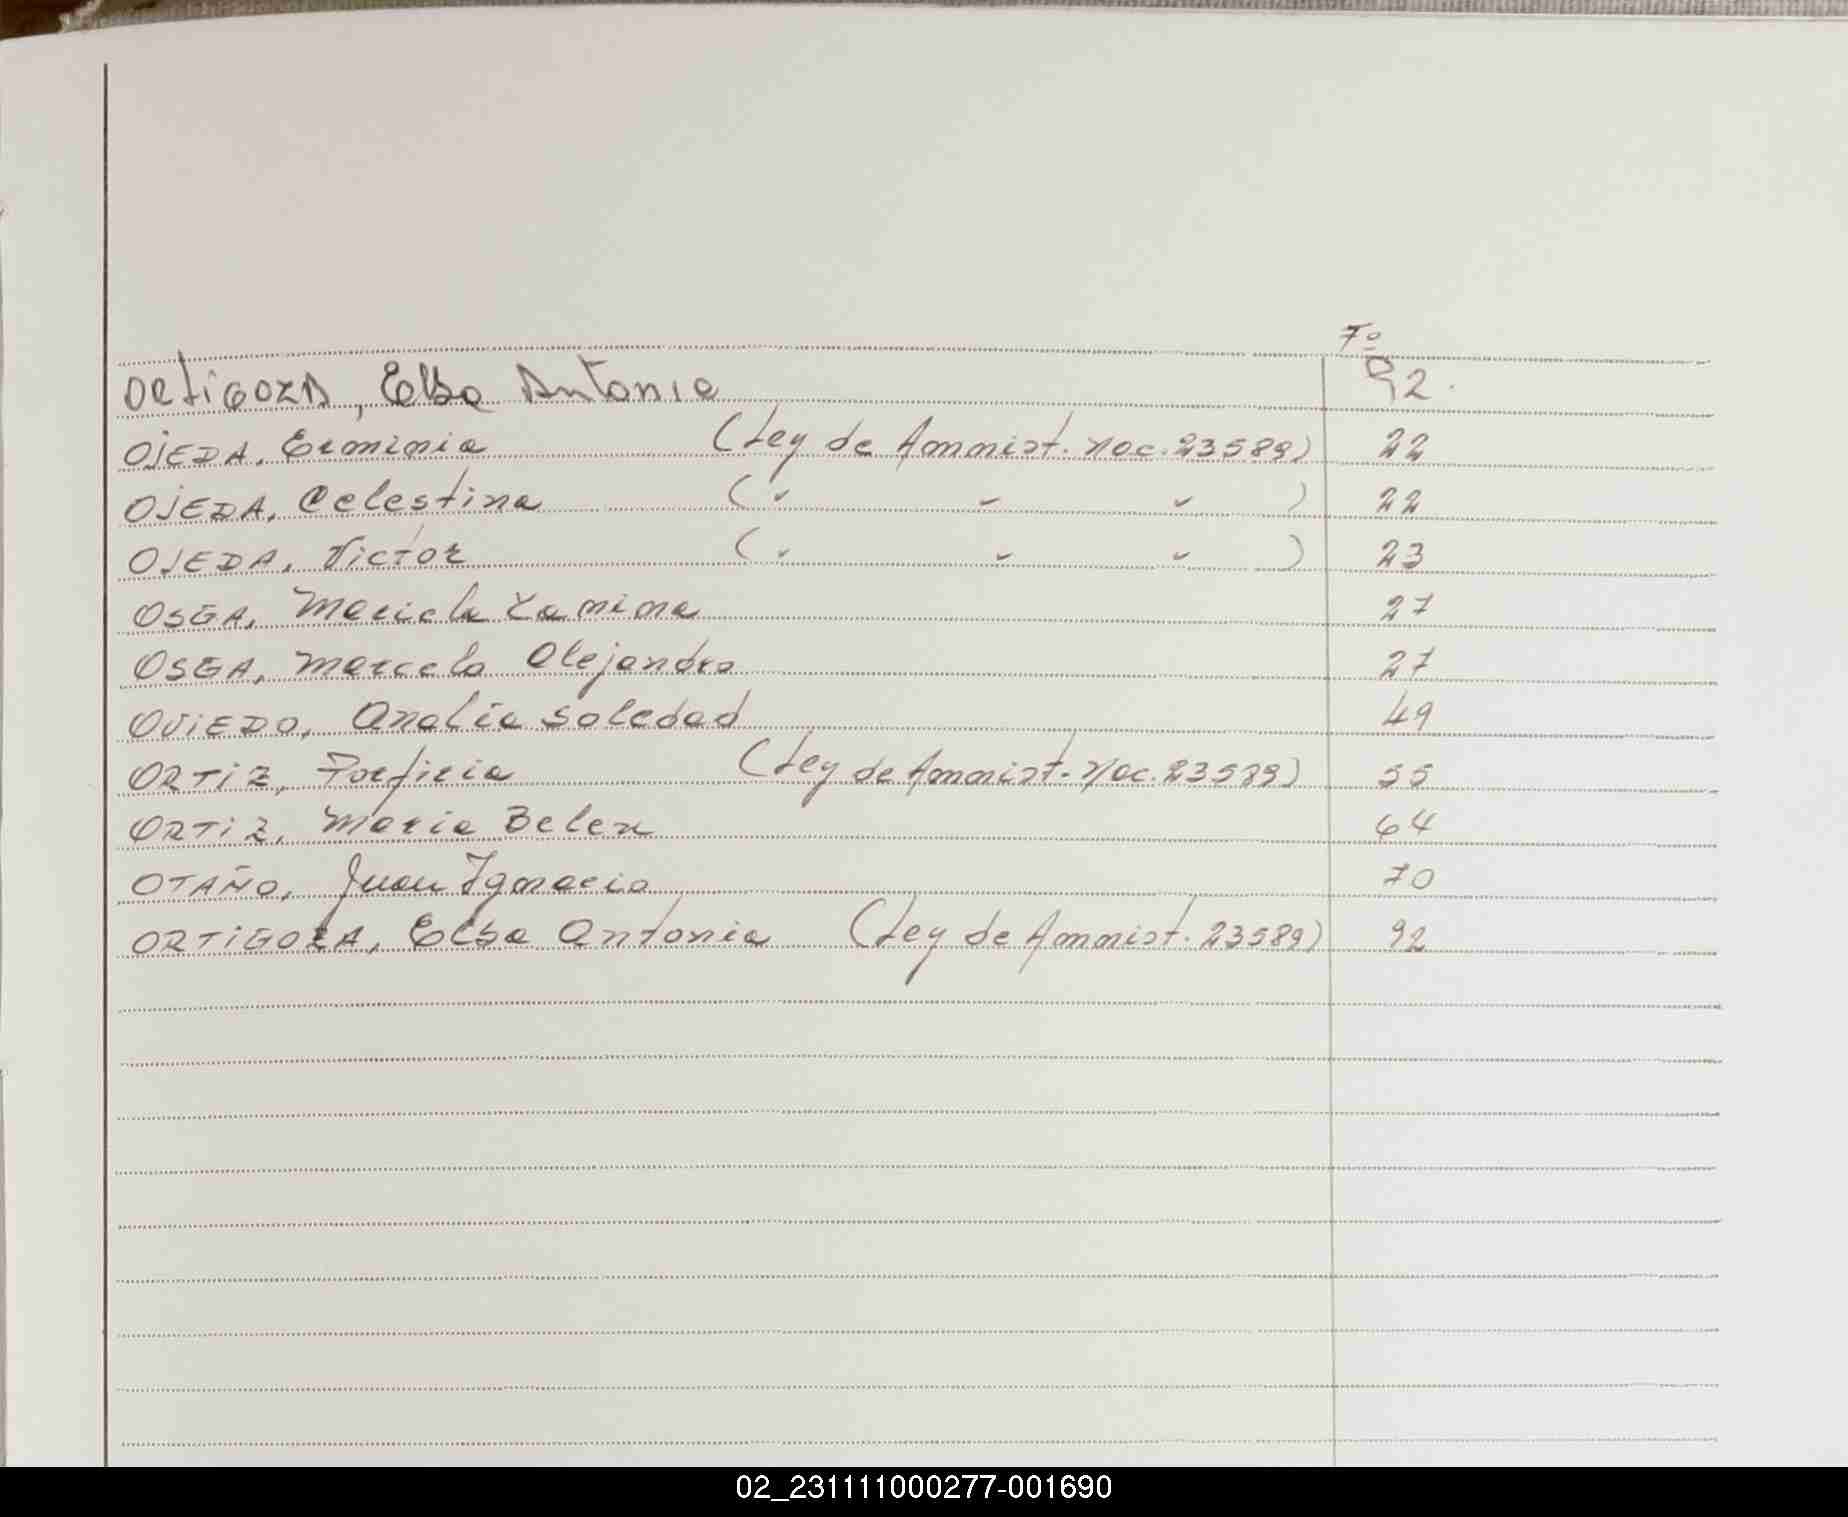 Fº
ORTIGOZA, Elba Antonia 92.
OJEDA, Erminia (Ley de Amnist. Nac. 23589) 22
OJEDA, Celestina ( " " " ) 22
OJEDA, Victor ( " " " ) 23
OSGA, Mariela Yanina 27
OSGA, Marcelo Alejandro 27
OVIEDO, Analia Soledad 49
ORTIZ, Porfiria (Ley de Amnist. Nac. 23589) 55
ORTIZ, Maria Belen 64
OTAÑO, Juan Ignacio 70
ORTIGOZA, Elba Antonia (Ley de Amnist. 23589) 92
02_231111000277-001690